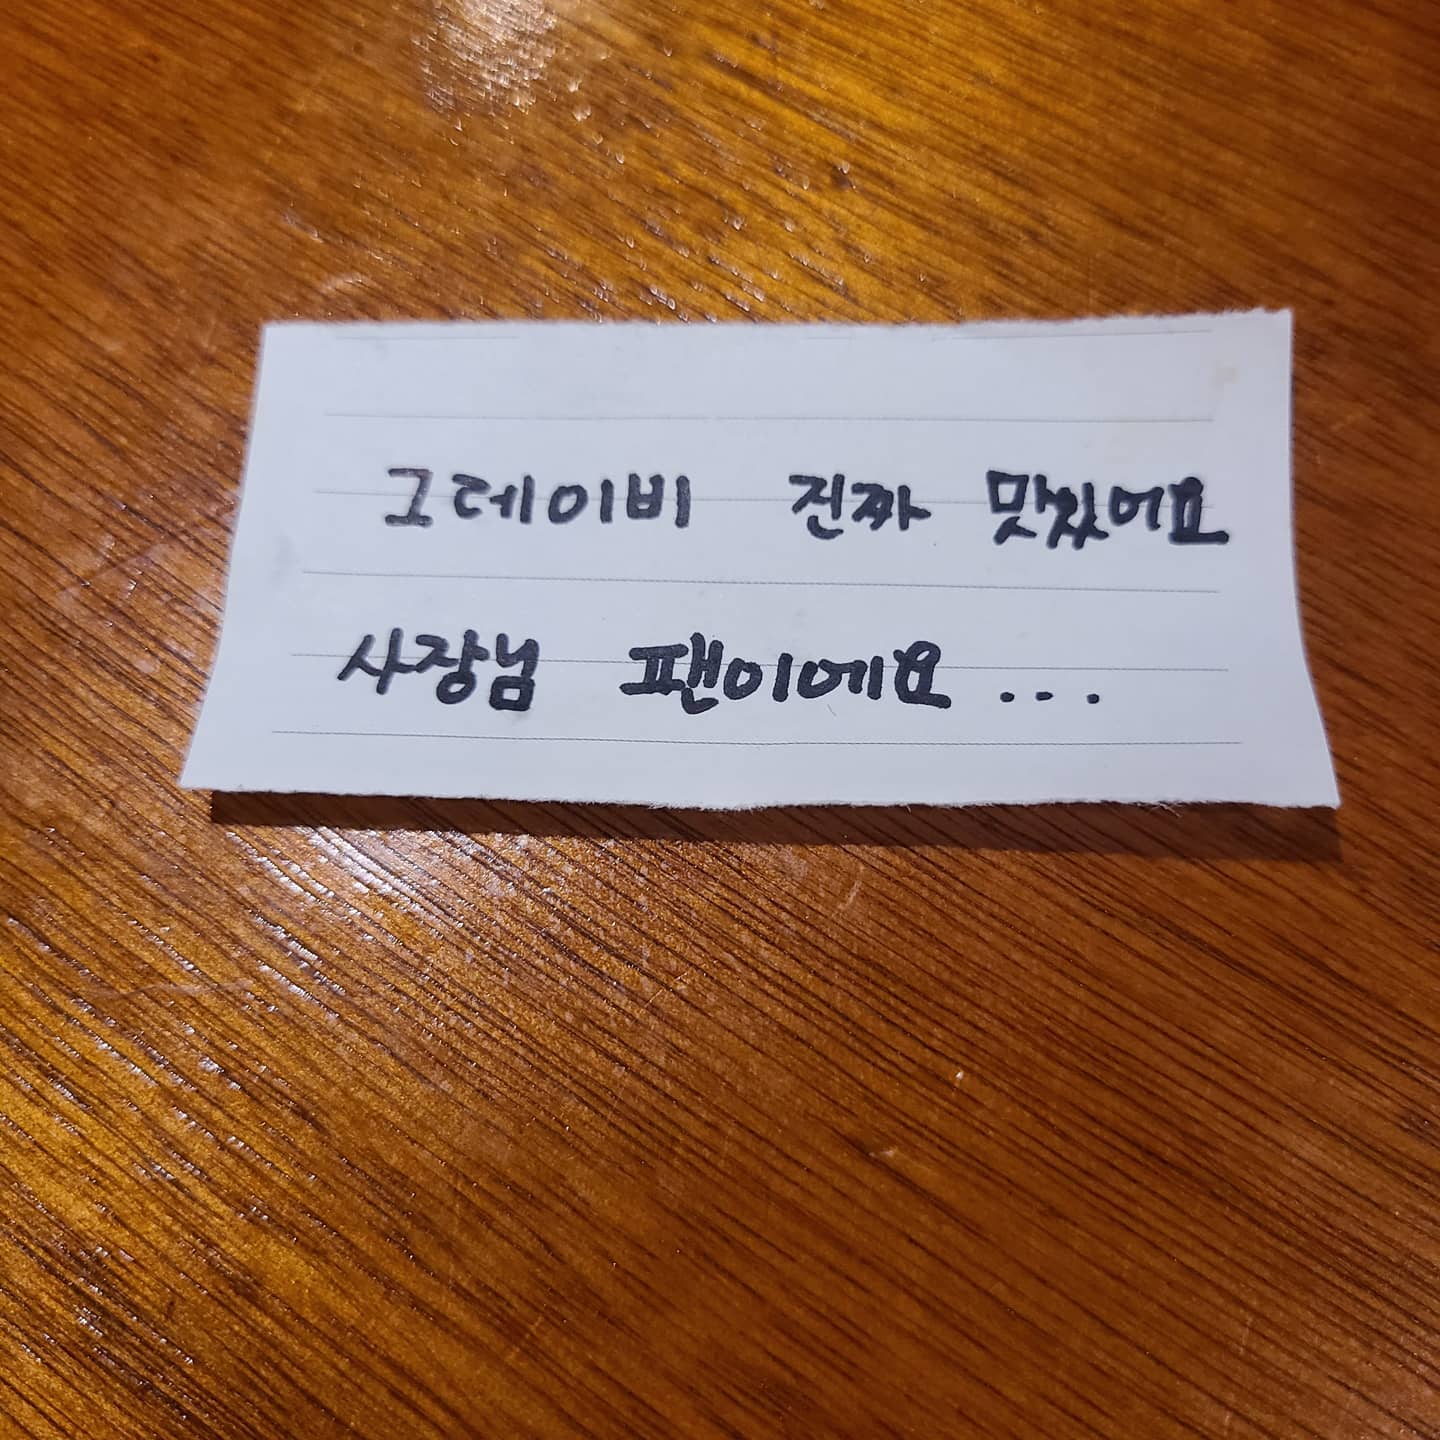 그데이비 진짜 맛있어요
사장님 팬이에요...